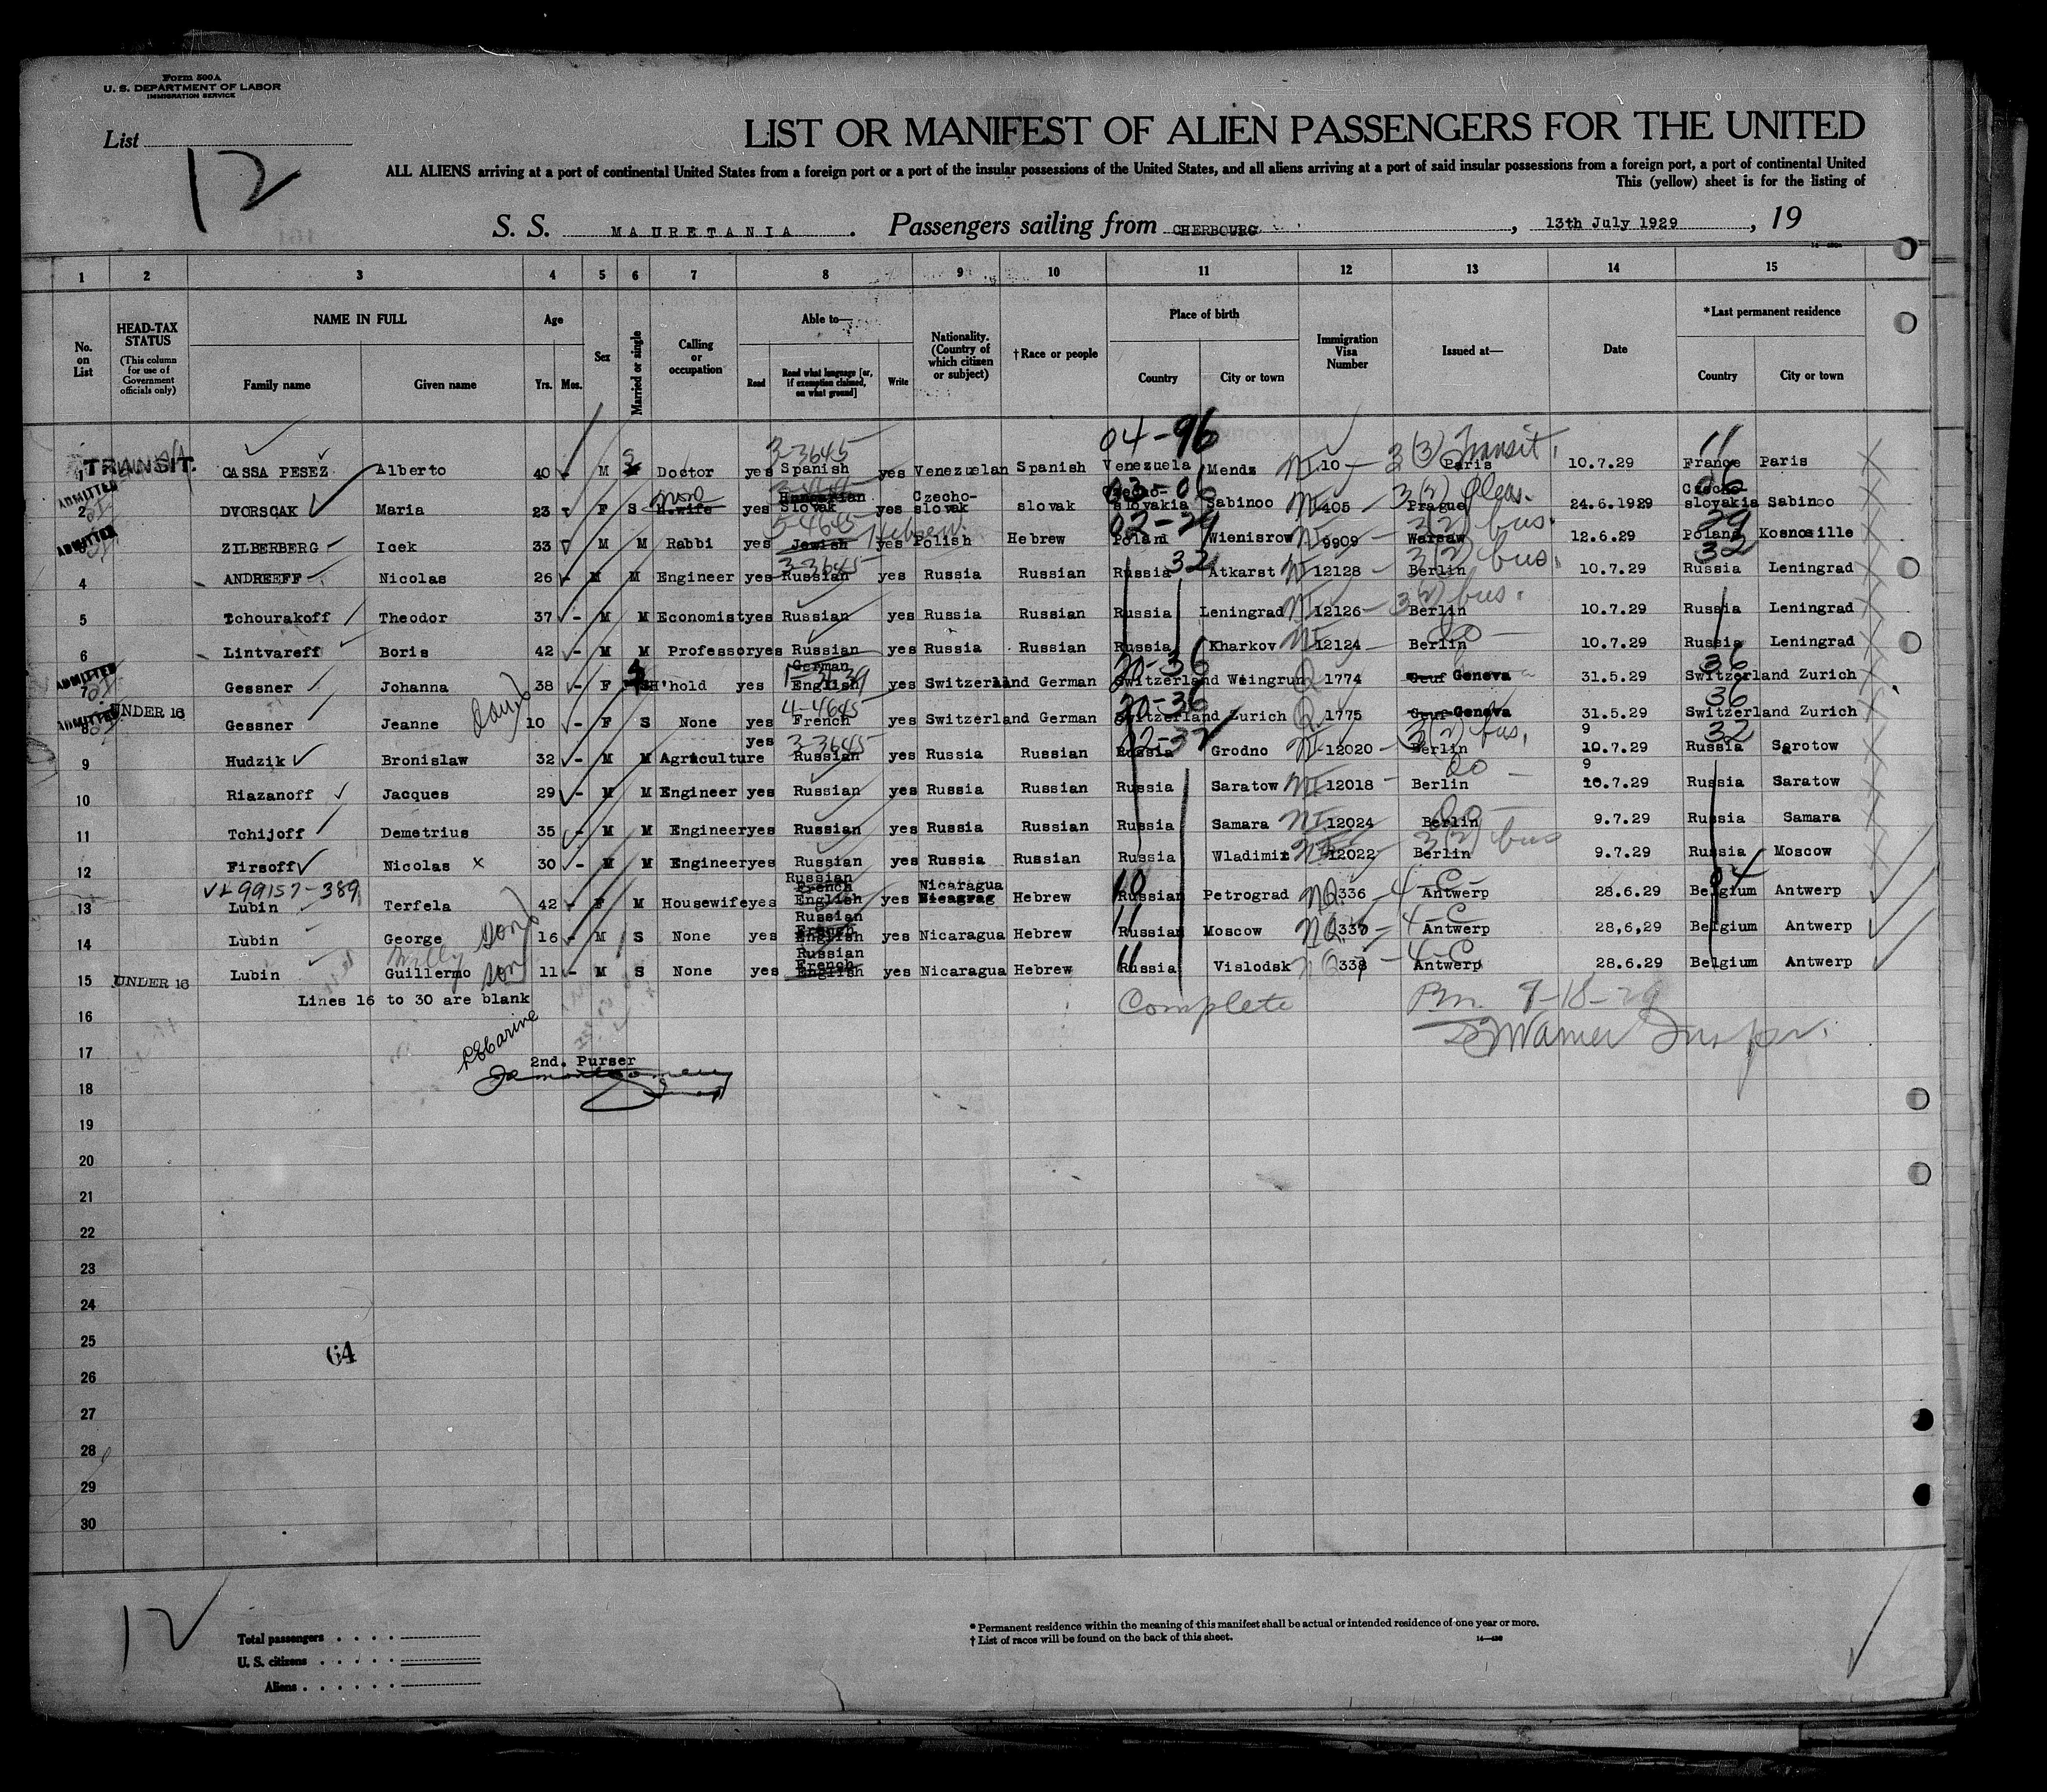 Form 500A
U. S. DEPARTMENT OF LABOR
IMMIGRATION SERVICE
List
12
LIST OR MANIFEST OF ALIEN PASSENGERS FOR THE UNITED
ALL ALIENS arriving at a port of continental United States from a foreign port or a port of the insular possessions of the United States, and all aliens arriving at a port of said insular possessions from a foreign port, a port of continental United
This (yellow) sheet is for the listing of
S. S. MAURETANIA. Passengers sailing from CHERBOURG, 13th July 1929, 19
1 2 3 4 5 6 7 8 9 10 11 12 13 14 15
No. on List
HEAD-TAX STATUS
(This column for use of Government officials only)
NAME IN FULL
Family name Given name
Age
Yrs. Mos.
Sex
Married or single
Calling or occupation
Able to—
Read Read what language [or, if exemption claimed, on what ground] Write
Nationality. (Country of which citizen or subject)
†Race or people
Place of birth
Country City or town
Immigration Visa Number
Issued at—
Date
*Last permanent residence
Country City or town
04-96
3-3645 3(3) Transit. 11
1 TRANSIT. CASSA PESEZ Alberto 40 M S Doctor yes Spanish yes Venezuelan Spanish Venezuela Mends NI 10 Paris 10.7.29 France Paris
ADMITTED Hungarian Czecho- Czecho- 03-06 3(2) pleas. Czecho- 06
2 DVORSCAK Maria 23 F S H.wife yes Slovak yes slovak slovak slovakia Sabinoo NI 405 Prague 24.6.1929 slovakia Sabinoo
ADMITTED 5-4645 Hebrew. 02-29 3(2) bus. 29
3 ZILBERBERG Icek 33 M M Rabbi yes Jewish yes Polish Hebrew Poland Wienisrow NI 9909 Warsaw 12.6.29 Poland Kosnosille
3-3645 32 3(2) bus. 32
4 ANDREEFF Nicolas 26 - M M Engineer yes Russian yes Russia Russian Russia Atkarst NI 12128 Berlin 10.7.29 Russia Leningrad
3(2) bus.
5 Tchourakoff Theodor 37 - M M Economist yes Russian yes Russia Russian Russia Leningrad NI 12126 Berlin 10.7.29 Russia Leningrad
Do
6 Lintvareff Boris 42 - M M Professor yes Russian yes Russia Russian Russia Kharkov NI 12124 Berlin 10.7.29 Russia Leningrad
ADMITTED German 20-36 36
7 Gessner Johanna 38 - F S H'hold yes English yes Switzerland German Switzerland Weingrun Q 1774 Genf Geneva 31.5.29 Switzerland Zurich
ADMITTED UNDER 16 Daug) 4-4645 20-36 36
8 Gessner Jeanne 10 - F S None yes French yes Switzerland German Switzerland Zurich Q 1775 Genf Geneva 31.5.29 Switzerland Zurich
3-3645 3(2) bus. 9 32
9 Hudzik Bronislaw 32 - M M Agraculture yes Russian yes Russia Russian Russia Grodno NI 12020 Berlin 10.7.29 Russia Sarotow
Do 9
10 Riazanoff Jacques 29 - M M Engineer yes Russian yes Russia Russian Russia Saratow NI 12018 Berlin 10.7.29 Russia Saratow
Do
11 Tchijoff Demetrius 35 - M M Engineer yes Russian yes Russia Russian Russia Samara NI 12024 Berlin 9.7.29 Russia Samara
3(2) bus
12 Firsoff Nicolas x 30 - M M Engineer yes Russian yes Russia Russian Russia Wladimir 12022 Berlin 9.7.29 Russia Moscow
VL 99157-389 Russian French Nicaragua 10 4-C- 04
13 Lubin Terfela 42 - F M Housewife yes English yes Nicaragua Hebrew Russian Petrograd NQ 336 Antwerp 28.6.29 Belgium Antwerp
son) Russian French 11 4-C
14 Lubin George 16 - M S None yes English yes Nicaragua Hebrew Russian Moscow NQ 33 Antwerp 28,6,29 Belgium Antwerp
Willy son Russian French 11 4-C
15 UNDER 16 Lubin Guillermo 11 - M S None yes English yes Nicaragua Hebrew Russia Vislodsk NQ 338 Antwerp 28.6.29 Belgium Antwerp
Lines 16 to 30 are blank
Complete
7-18-29
16
17
2nd. Purser
18
19
20
21
22
23
24
25
64
26
27
28
29
30
12
Total passengers
U. S. citizens
Aliens
* Permanent residence within the meaning of this manifest shall be actual or intended residence of one year or more.
† List of races will be found on the back of this sheet.